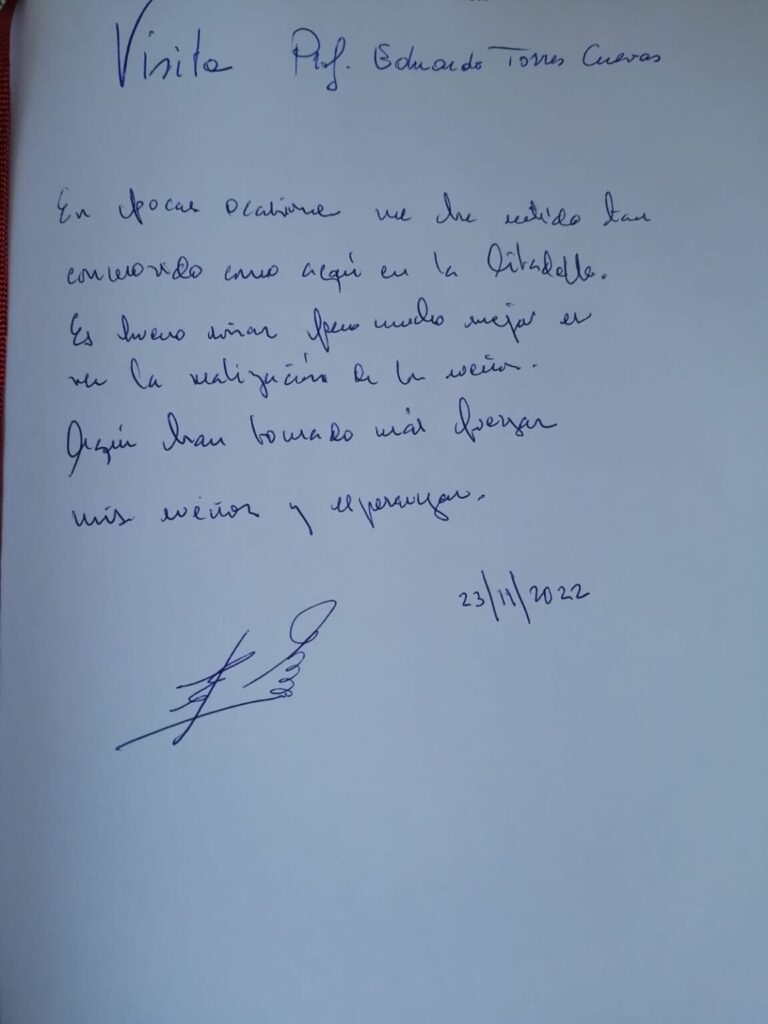 Visita Prof. Eduardo Torres Cuevas
En pocas ocasiones me he sentido tan
conmovido como aquí en la Citadelle.
Es bueno soñar pero mucho mejor es
ver la realización de los sueños.
Aquí han tomado más fuerzas
mis sueños y esperanzas.
23/11/2022